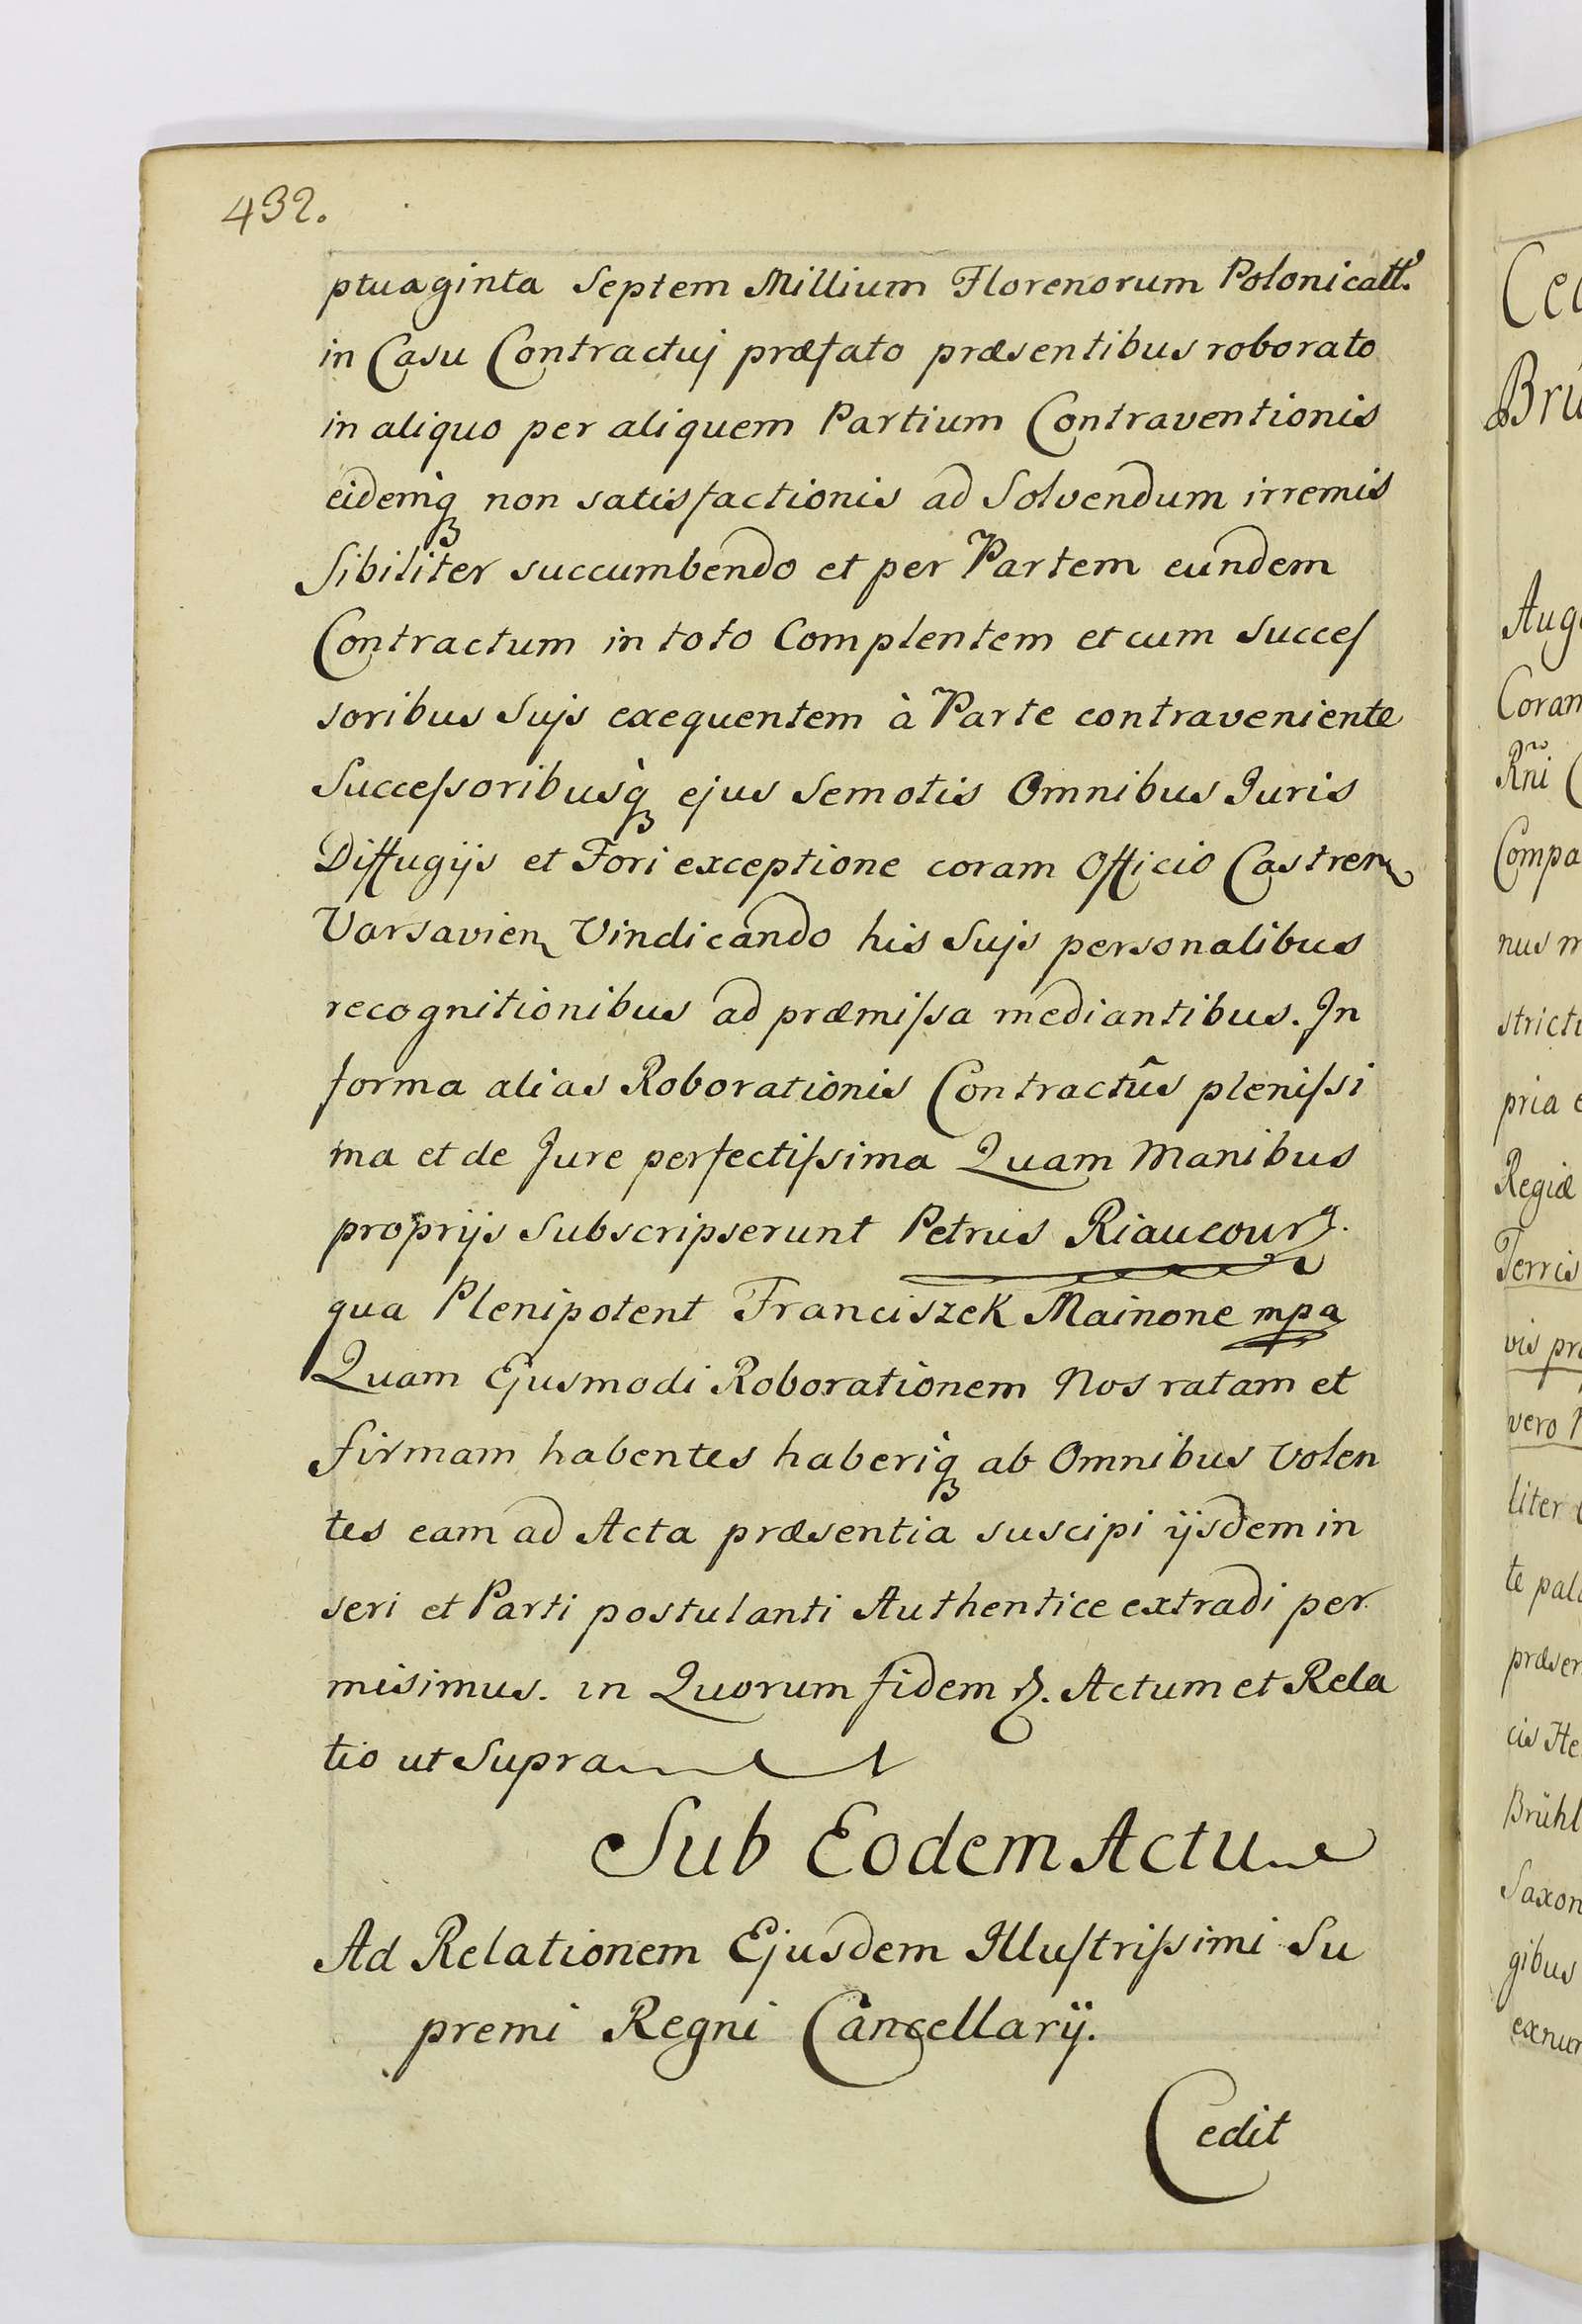 432.
ptuaginta Septem Millium Florenorum Polonicall.
in Casu Contractuj præfato præsentibus roborato
in aliquo per aliquem Partium Contraventionis
eidemq́ non satisfactionis ad Solvendum irremis
sibiliter succumbendo et per Partem eundem
Contractum in toto Complentem et cum Succes
soribus Sujs exequentem à Parte contraveniente
Successoribusq́ ejus Semotis Omnibus Juris
Diffugijs et Fori exceptione coram Officio Castren
Varsavien Vindicando his Sujs personalibus
recognitionibus ad præmissa mediantibus. In
forma alias Roborationis Contractûs plenissi
ma et de Jure perfectissima Quam Manibus
proprijs Subscripserunt Petrus Riaucour.
qua Plenipotent Franciszek Mainone mpa
Quam Ejusmodi Roborationem Nos ratam et
firmam habentes haberiq́ ab Omnibus Volen
tes eam ad Acta præsentia suscipi ijsdem in
seri et Parti postulanti Authentice extradi per
misimus. in Quorum fidem &. Actum et Rela
tio ut Supra
Sub Eodem Actu
Ad Relationem Ejusdem Illustrissimi Su
premi Regni Cancellarij.
Cedit
Bru
Coram
Rñi
Compa
nus m
stricti
pria
Regiæ
Terris
vis pr
vero
liter
te pal
præsen
Brühl
Saxon
gibus